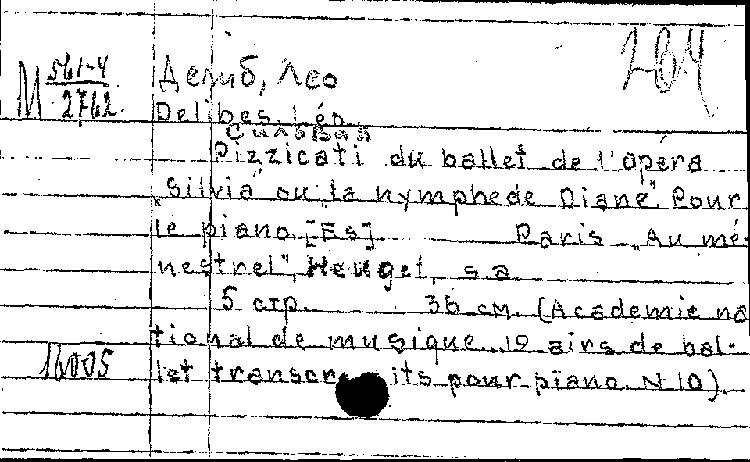 М 561-4
2762
264
Делиб, Лео
Delibes, Léo
Сильвия
Pizzicati du ballet de l'opéra
„Silvia" ou la nymphe de Diane". Pour
le piano. [Es] Paris „Au mé-
nestrel", Heugel, s.a.
5 стр. 36 см. (Academie na
tional de musique. 19 airs de bal-
let transcrits pour piano. N 10).
16005